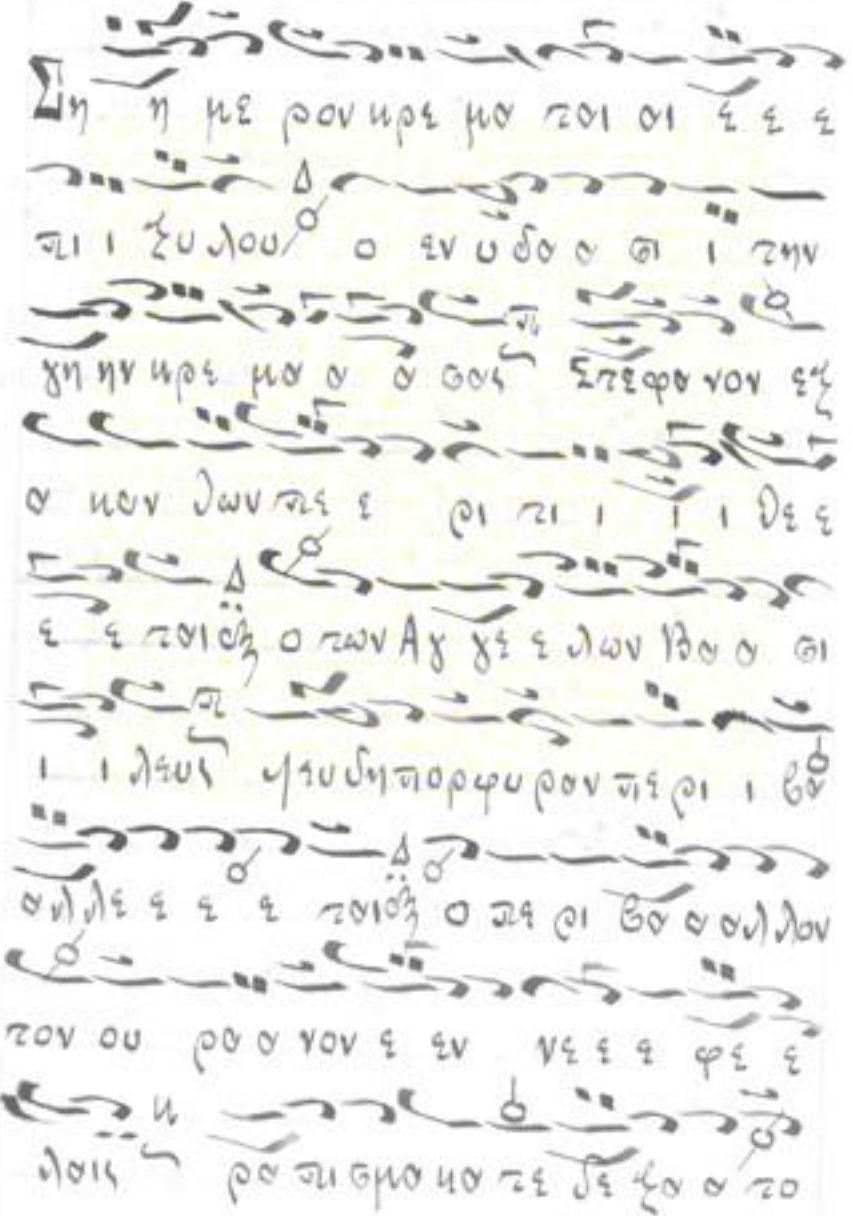 Ση η με ρον κρε μα ται αι ε ε ε
πι ι ξυ λου ο εν υ δα α σι ι την
γη ην κρε μα α α σας Στεφα νον εξ
α καν θων πε ε ρι τι ι ι ι θε ε
ε ε ται ο των Αγ γε ε λων Βα α σι
ι ι λευς ψευ δη πορφυ ραν πε ρι ι βα
α λλε ε ε ε ται ο πε ρι βα α α λλων
τον ου ρα α νον ε εν νε ε ε φε ε
λαις ρα πι σμα κα τε δε ξα α το